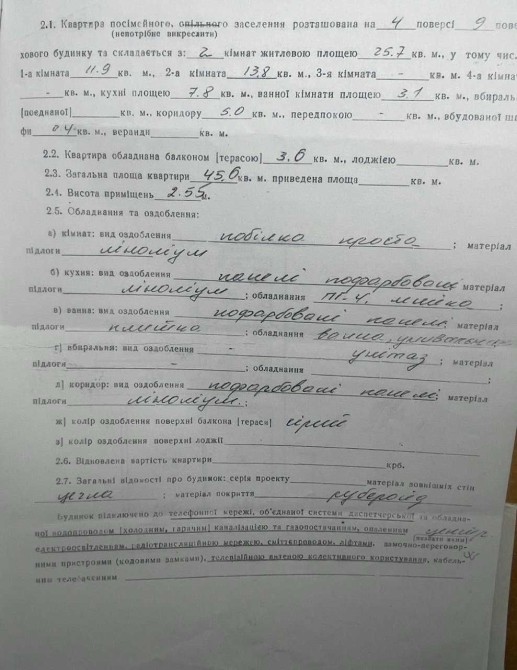 2.1. Квартира посімейного, спільного заселення розташована на 4 поверсі 9 пове
(непотрібне викреслити)
хового будинку та складається з: 2 кімнат житловою площею 25.7 кв. м., у тому чис.
1-а кімната 11.9 кв. м., 2-а кімната 13,8 кв. м., 3-я кімната - кв. м. 4-а кімнат
- кв. м., кухні площею 7.8 кв. м., ванної кімнати площею 3.1 кв. м., вбираль
[поєднаної] кв. м., коридору 5.0 кв. м., передпокою - кв. м., вбудованої ша
фи 0.4 кв. м., веранди кв. м.
2.2. Квартира обладнана балконом [терасою] 3.6 кв. м., лоджією кв. м.
2.3. Загальна площа квартири 45,6 кв. м. приведена площа кв. м.
2.4. Висота приміщень 2.55 м.
2.5. Обладнання та оздоблення:
а) кімнат: вид оздоблення побілка проста ; матеріал
підлоги лінолїум
б) кухня: вид оздоблення панелі пофарбовані матеріал
підлоги лінолїум ; обладнання пг-4, мийка ;
в) ванна: вид оздоблення пофарбовані панелі; матеріал
підлоги плитка ; обладнання ванна, умивальник
г) вбиральня: вид оздоблення - унітаз ; матеріал
підлоги - ; обладнання ;
д) коридор: вид оздоблення пофарбовані панелі; матеріал
підлоги лінолїум ;
ж) колір оздоблення поверхні балкона [тераси] сірий
з) колір оздоблення поверхні лоджії
2.6. Відновлена вартість квартири крб.
2.7. Загальні відомості про будинок: серія проекту матеріал зовнішніх стін
цегла ; матеріал покриття рубероїд
Будинок підключено до телефонної мережі, об'єднаної системи диспетчерської та обладна-
ної водопроводом [холодним, гарячим] каналізацією та газопостачанням, опаленням центр
(вказати яким)
електроосвітленням, радіотрансляційною мережею, сміттєпроводом, ліфтами, замочно-переговор-
ними пристроями (кодовими замками), телевізійною антеною колективного користування, кабель-
ним телебаченням